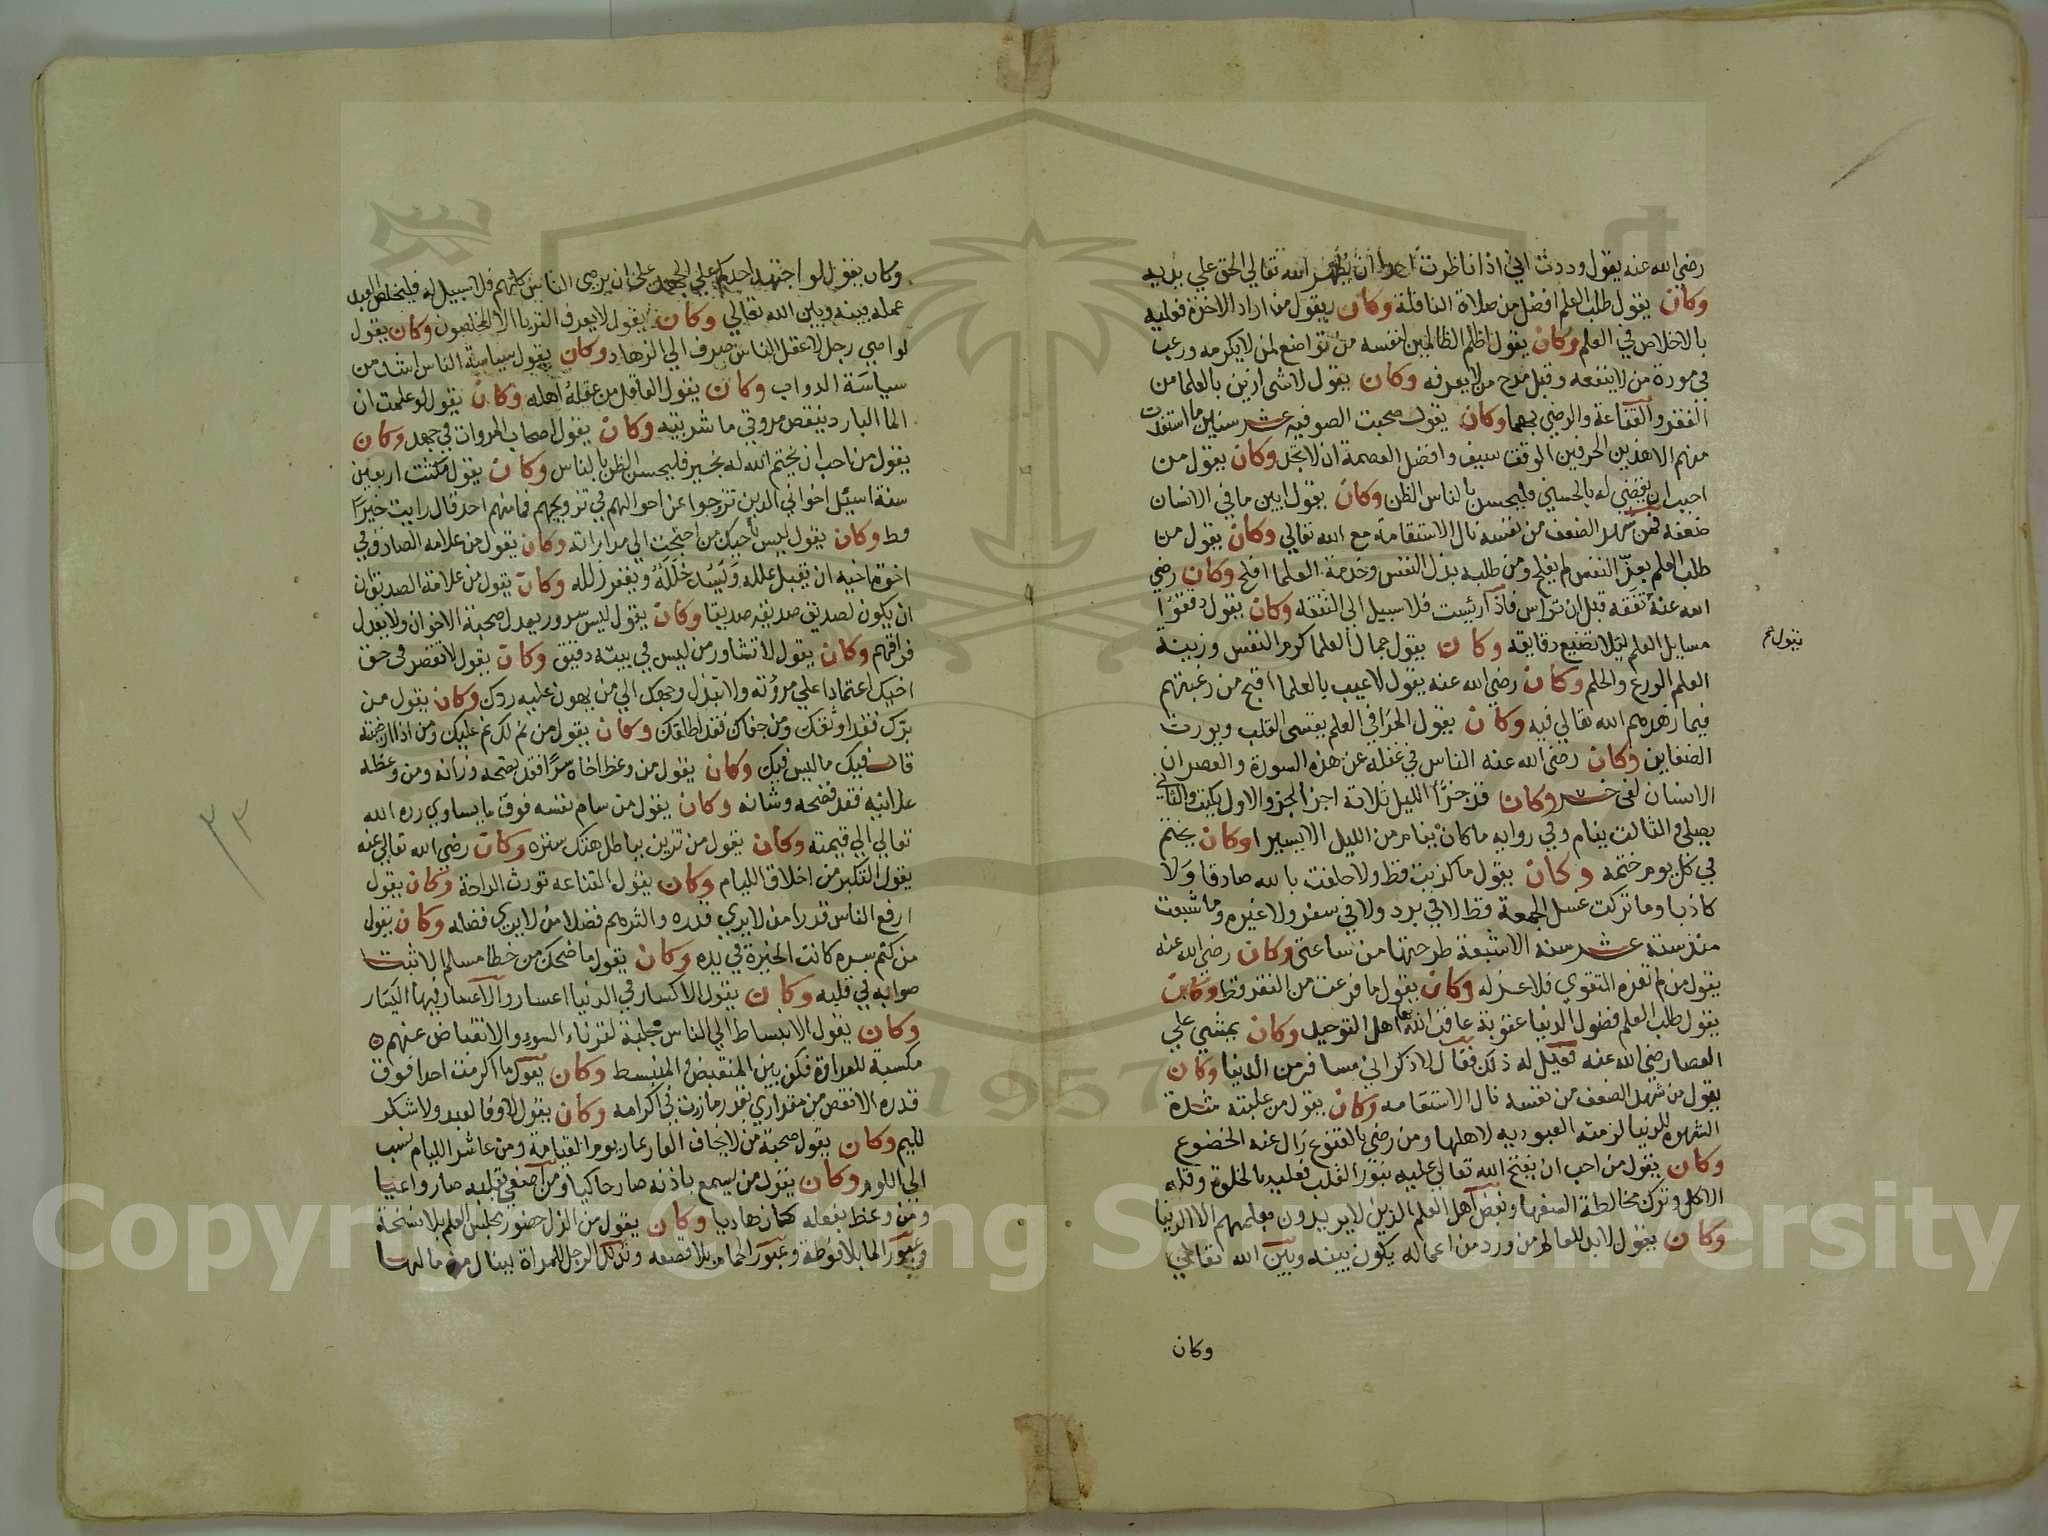 رضي الله عنه يقول وددت اني اذا ناظرت احدا ان يظهر الله تعالي الحق علي يديه
وكان يقول طلب العلم افضل من صلاة النافلة وكان يقول من اراد الاخرة فعليه
بالاخلاص في العلم وكان يقول اظلم الظالمين لنفسه من تواضع لمن لا يكرمه ورغب
في مودة من لا ينفعه وقبل مدح من لا يعرفه وكان يقول لا شي ازين بالعلما من
الفقر والقناعة والرضي بهما وكان يقول صحبت الصوفيه عشر سنين ما استفدت
منهم الا هذين الحرفين الوقت سيف وافضل العصمة ان لا تجد وكان يقول من
احب ان يقضي له بالحسني فليحسن بالناس الظن وكان يقول ابين ما في الانسان
ضعفه فمن شهد الضعف من نفسه نال الاستقامة مع الله تعالي وكان يقول من
طلب العلم بعز النفس لم يفلح ومن طلبه بذل النفس وخدمة العلما افلح وكان رضي
الله عنه تفقه قبل ان تراس فاذا رئست فلا سبيل الي التفقه وكان يقول دققوا
يقول
مسايل العلم ليلا تضيع دقايقه وكان يقول جمال العلما كرم النفس وزينة
العلم الورع والحلم وكان رضي الله عنه يقول لا عيب بالعلما اقبح من رغبتهم
فيما زهدهم الله تعالي فيه وكان يقول المرا في العلم يقسي القلب ويورث
الضغاين وكان رضي الله عنه الناس في غفله عن هذه السورة والعصر ان
الانسان لفي خسر وكان قد جزا الليل ثلاثة اجزا الجزو الاول يكتب والثاني
يصلي والثالث ينام وفي روايه ما كان ينام من الليل الا يسيرا وكان يختم
في كل يوم ختمة وكان يقول ما كذبت قط ولا حلفت بالله صادقا ولا
كاذبا وما تركت غسل الجمعة قط لا في برد ولا في سفر ولا غيره وما شبعت
منذ ستة عشر سنه الا شبعة طرحتها من ساعتي وكان رضي الله عنه
يقول من لم تعزه التقوي فلا عز له وكان يقول ما فزعت من الفقر قط وكان
يقول طلب العلم فضول الدنيا عقوبة عاقب الله بها اهل التوحيد وكان يمشي علي
العصا رضي الله عنه فقيل له ذلك فقال لاذكر اني مسافر من الدنيا وكان
يقول من شهد الضعف من نفسه نال الاستقامه وكان يقول من غلبته شدة
الشهوة للدنيا لزمته العبوديه لاهلها ومن رضي بالقنوع زال عنه الخضوع
وكان يقول من احب ان يفتح الله تعالي عليه بنور القلب فعليه بالخلوة وقلة
الاكل وترك مخالطة السفها وبغض اهل العلم الذين لا يريدون بعلمهم الا الدنيا
وكان يقول لا بد للعالم من ورد من اعماله يكون بينه وبين الله تعالي
وكان
وكان يقول لو اجتهد احدكم علي الجهد علي ان يرضي الناس كلهم فلا سبيل له فليخلص العبد
عمله بينه وبين الله تعالي وكان يقول لا يعرف الريا الا المخلصون وكان يقول
لو اوصي رجل لاعقل الناس صرف الي الزهاد وكان يقول سياسة الناس اشد من
سياسة الدواب وكان يقول العاقل من عقله اهله وكان يقول لو علمت ان
الما البارد ينقص مروتي ما شربته وكان يقول اصحاب المروات في جهد وكان
يقول من احب ان يختم الله له بخير فليحسن الظن بالناس وكان يقول مكثت اربعين
سنة اسئل اخواني الذين تزوجوا عن احوالهم في تزويجهم فما منهم احد قال رايت خيرا
قط وكان يقول ليس باخيك من احتجت الي مداراته وكان يقول من علامة الصادق في
اخوة اخيه ان يقبل علله ويسد خلله ويغفر زلله وكان يقول من علامة الصديق ان
ان يكون لصديق صديقه صديقا وكان يقول ليس سرور يعدل صحبة الاخوان ولا يعدل
فراقهم وكان يقول لا تشاور من ليس في بيته دقيق وكان يقول لا تقصر في حق
اخيك اعتمادا علي مروته ولا تبذل وجهك الي من يهون عليه ردك وكان يقول من
برك فقد اوثقك ومن جفاك فقد اطلقك وكان يقول من نم لك نم عليك ومن اذا ارضيته
قال فيك ما ليس فيك وكان يقول من وعظ اخاه سرا فقد نصحه وزانه ومن وعظه
علانية فقد فضحه وشانه وكان يقول من سام نفسه فوق ما يساوي رده الله
تعالي الي قيمته وكان يقول من تزين بباطل هتك ستره وكان رضي الله تعالي عنه
يقول التكبر من اخلاق الليام وكان يقول القناعه تورث الراحة وكان يقول
ارفع الناس قدرا من لا يري قدره واكثرهم فضلا من لا يري فضله وكان يقول
من كتم سره كانت الخيرة في يده وكان يقول ما ضحك من خطا مسالم الا ثبت
صوابه في قلبه وكان يقول الاكسار في الدنيا اعسار والاعسار فيها ايسار
وكان يقول الانبساط الي الناس مجلبة لقرناء السوء والانقباض عنهم
مكسبة للعداوة فكن بين المنقبض والمنبسط وكان يقول ما اكرمت احدا فوق
قدره الا نقص من مقداري بقدر ما زدت في اكرامه وكان يقول لا وفا لعبد ولا شكر
للييم وكان يقول صحبة من لا يخاف العار عار يوم القيامة ومن عاشر الليام نسب
الي اللوم وكان يقول من يسمع باذنه صار حاكيا ومن اصغي بقلبه صار واعيا
ومن وعظ بفعله كان هاديا وكان يقول من الذل حضور مجلس العلم بلا نسخة
وعبور الما بلا فوطة وعبور الحمام بلا قصعه وتذلل الرجل للمراة لينال من مالها
٣٣
Copyright © King Saud University
1957